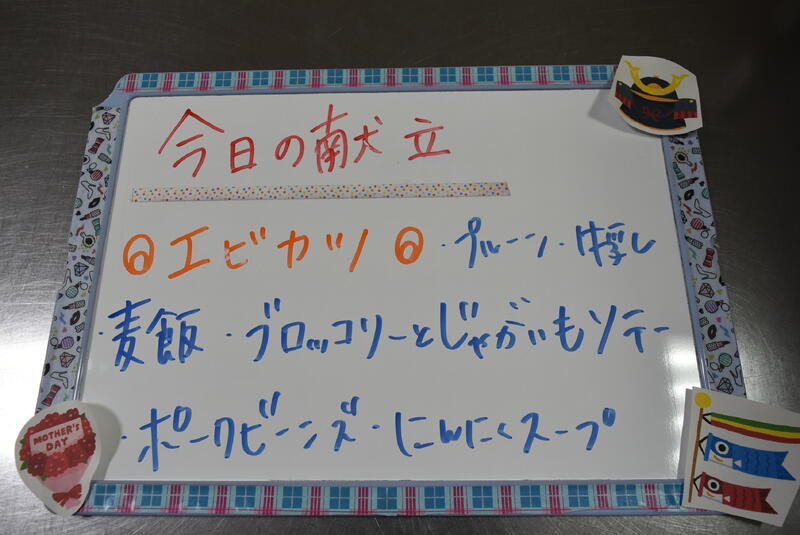 今日の献立
◎エビカツ◎・プルーン・牛乳
・麦飯・ブロッコリーとじゃがいもソテー
・ポークビーンズ・にんにくスープ
MOTHER'S
DAY